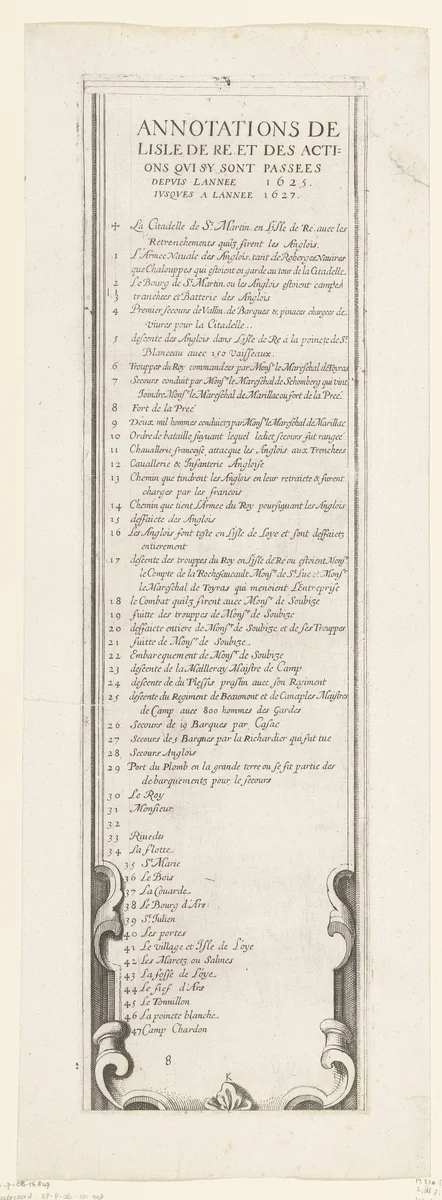 ANNOTATIONS DE
LISLE DE RE ET DES ACTI=
ONS QVI SY SONT PASSEES
DEPVIS LANNEE 1625.
IVSQVES A LANNEE 1627.
La Citadelle de St. Martin en L'Isle de Re. avec les
Retrenchements quilz firent les Anglois.
1 L'Armee Navale des Anglois, tant de Roberges Navires
que Chalouppes qui estoient en garde au tour de la Citadelle.
2 Le Bourg de St. Martin ou les Anglois estoient campés
3 tranchees et Batterie des Anglois
4 Premier secours de Vallin, de Barques & pinaces chargees de
vivres pour la Citadelle.
5 descente des Anglois dans L'Isle de Re à la poincte de St.
Blanceau avec 150 vaisseaux.
6 Trouppes du Roy commandees par Monsr. le Mareschal de Toyras
7 Secours conduit par Monsr. le Mareschal de Schomberg qui vint
Joindre Monsr. le Mareschal de Marillac ou fort de la Preé
8 Fort de la Preé
9 Deux mil hommes conduictz par Monsr. le Mareschal de Marillac
10 Ordre de bataille suyuant lequel ledict secours fut rangee
11 Chavallerie francoise attacque les Anglois aux Trenchees
12 Cavallerie & Infanterie Angloise
13 Chemin que tindrent les Anglois en leur retraicte & furent
charges par les francois
14 Chemin que tient L'Armee du Roy poursuyuant les Anglois
15 deffaicte des Anglois
16 Les Anglois font teste en L'Isle de Loye et sont deffaictz
entierement
17 descente des trouppes du Roy en L'Isle de Re ou estoient Monsr.
le Compte de la Rochefaucault Monsr. de St. Luc et Monsr.
le Mareschal de Toyras qui menoient L'entreprise
18 le Combat quilz firent avec Monsr. de Soubize
19 fuitte des trouppes de Monsr. de Soubize
20 deffaicte entiere de Monsr. de Soubize et de ses Trouppes
21 fuitte de Monsr. de Soubize
22 Embarequement de Monsr. de Soubize
23 descente de la Mailleray Maistre de Camp
24 descente de du Plessis praslin avec son Regiment
25 descente du Regiment de Beaumont et de Canaples Maistres
de Camp avec 800 hommes des Gardes
26 Secours de 19 Barques par Casac
27 Secours de 5 Barques par la Richardier qui fut tué
28 Secours Anglois
29 Port du Plomb en la grande terre ou se fit partie des
debarquementz pour le secours
30 Le Roy
31 Monsieur
32
33 Rivedu
34 La flotte
35 Ste Marie
36 Le Bois
37 La Couarde
38 Le Bourg d'Ars
39 St. Julien
40 Les portes
41 Le village et Isle de Loye
42 Les Maretz ou Salines
43 La fosse de Loye
44 Le fief d'Ars
45 Le Tonnillon
46 La poincte blanche
47 Camp Chardon
8
K